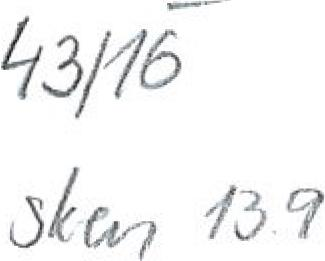 43/16
sken 13.9